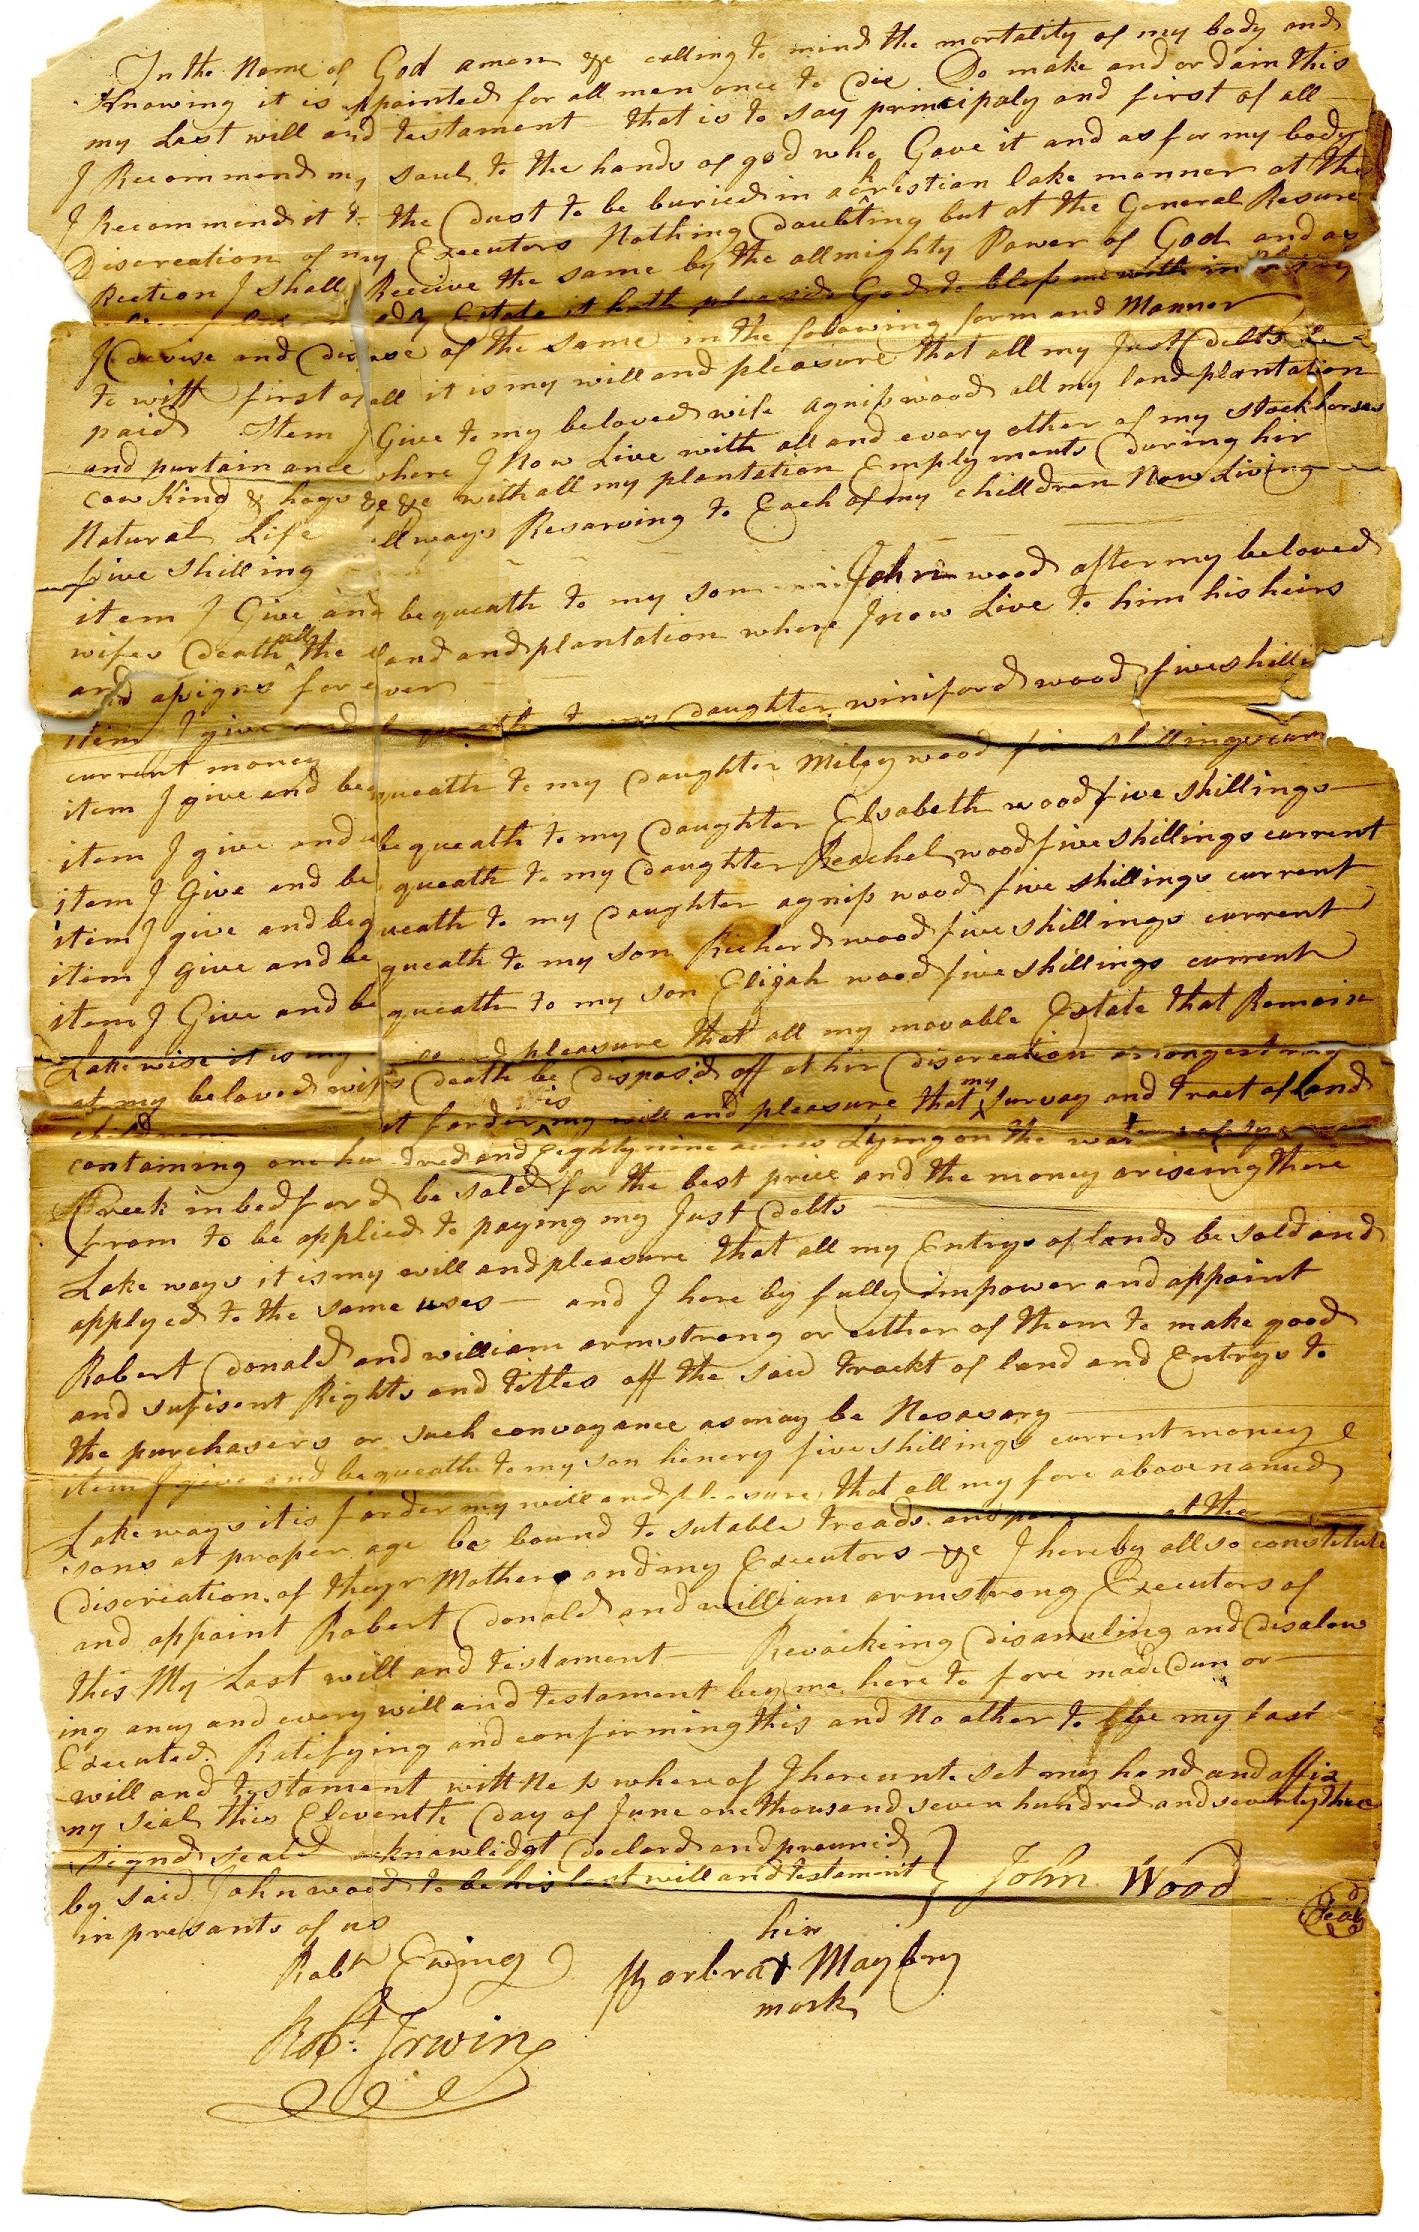 In the Name of God amen &c calling to mind the mortality of my body and
Knowing it is appointed for all men once to Die Do make and ordain this
my Last will and testament that is to say principaly and first of all
I Recommend my soul to the hands of god who Gave it and as for my body
I Recommend it to the Dust to be buried in a Christian lake manner at the
Discreation of my Executors Nothing Doubting but at the General Resure
Rection I shall Receive the same by the allmighty Power of God and as
Estate it hath pleased God to bless me with in
I Devise and Disease of the same in the folowing form and Manner
to witt first of all it is my will and pleasure that all my Just Debts be
paid Item I Give to my beloved wife Agniss wood all my land plantation
and purtainance where I Now Live with all and every other of my stock horses
cow Kind & hogs &c &c with all my plantation Emplyments During hir
Natural Life allways Resarving to Each of my chilldren Now Living
five Shilling
item I Give and bequeath to my son John wood after my beloved
wifes Death all the land and plantation where I now Live to him his heirs
and assigns for ever
item I give and bequeath to my Daughter winiford wood five shilli
current money
item I give and bequeath to my Daughter Miley wood shillings curr
item I give and bequeath to my Daughter Elsabeth wood five shillings
item I Give and bequeath to my Daughter Reachel wood five shillings current
item I give and bequeath to my Daughter agniss wood five shillings current
item I give and bequeath to my son Richard wood five shillings current
item I Give and bequeath to my son Elijah wood five shillings current
Lakewise it is my will and pleasure that all my movable Estate that Remain
at my beloved wifs Death be Disposd off at hir Discreation amongest my
children it forder is my will and pleasure that my survay and tract of land
containing one hundred and Eighty nine acres Lying on the waters of
Creek in bedford be sold for the best price and the money ariseing there
from to be applied to paying my Just Debts
Lake ways it is my will and pleasure that all my Entrys of lands be sold and
applyed to the same uses — and I here by fully impower and appoint
Robert Donald and william armstrong or either of them to make good
and sufisent Rights and titles off the said trackt of land and Entrys to
the purchasers or such convayance as may be Nesasary
item I give and bequeath to my son henery five shillings current money &
Lake ways it is forder my will and pleasure that all my fore above named
sons at proper age be bound to sutable treads and at the
Discreation of theyr Mother and my Executors &c I hereby allso constitute
and appoint Robert Donald and william armstrong Executors of
this My Last will and testament — Revoikeing Disanuling and Disalow
ing any and every will and testament bey me here to fore made Dun or
Executed. Ratifying and confirming this and No other to be my last
will and testament wittness whereof I hereunto set my hand and affix
my seal this Eleventh Day of June one thousand seven hundred and seventy three
signd seald acknowlidgt Declard and prounid
by said John wood to be his last will and testamint } John Wood Seal
in presants of us
Robt Ewing
his
Barbra X Maybry
mark
Robt. Irwin